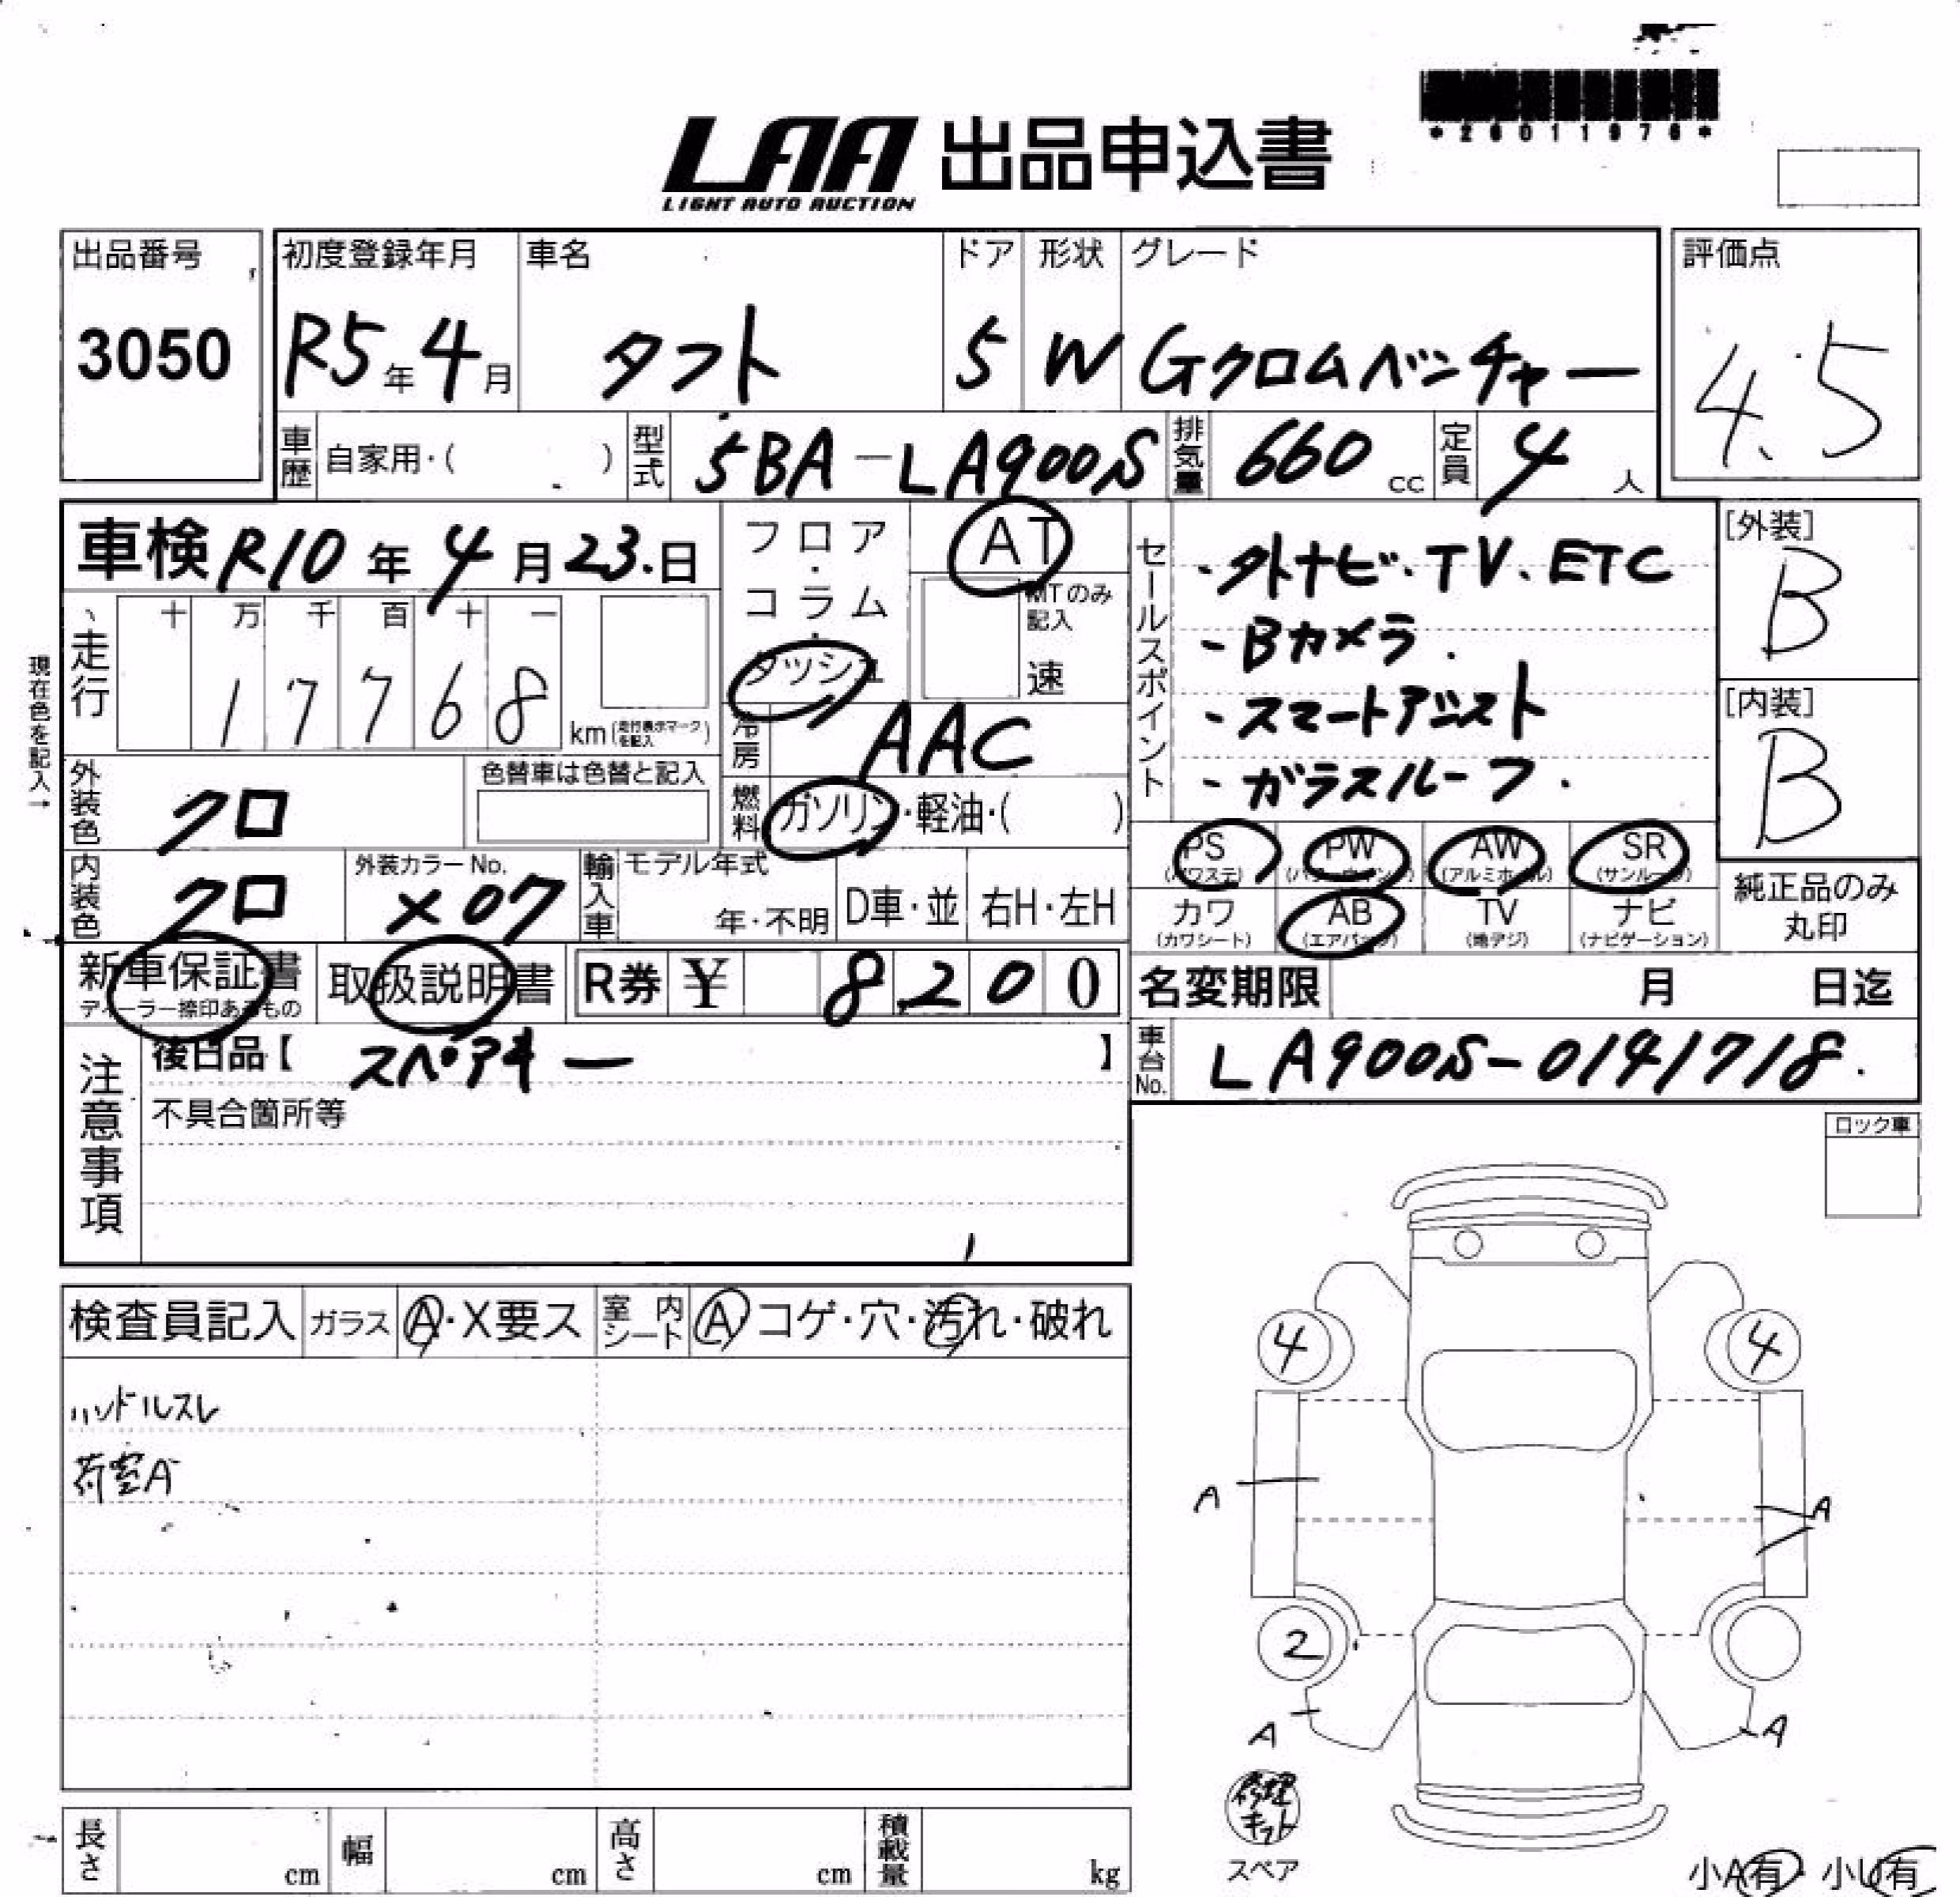 *26011976*
LAA 出品申込書
LIGHT AUTO AUCTION
出品番号 初度登録年月 車名 ドア 形状 グレード 評価点
3050 R5年4月 タフト 5 W Gクロムベンチャー 4.5
車歴 自家用・( ) 型式 5BA-LA900S 排気量 660 cc 定員 4人
車検 R10年4月23日 フロア・コラム・ダッシュ AT セールスポイント ・外ナビ・TV、ETC [外装]
MTのみ記入 ・Bカメラ B
現在色を記入→ 走行 十 万 千 百 十 一 速 ・スマートアシスト [内装]
1 7 7 6 8 km(走行表示マークを記入) 冷房 AAC ・ガラスルーフ B
外装色 クロ 色替車は色替と記入 燃料 ガソリン・軽油・( )
PS PW AW SR
(パワステ) (パワーウインド) (アルミホイル) (サンルーフ)
内装色 クロ 外装カラーNo. X07 輸入車 モデル年式 年・不明 D車・並 右H・左H
カワ AB TV ナビ 純正品のみ
(カワシート) (エアバッグ) (地デジ) (ナビゲーション) 丸印
新車保証書 取扱説明書 R券 ¥ 8,200 名変期限 月 日迄
ディーラー捺印あるもの
注意事項 後日品【 スペアキー 】 車台No. LA900S-0141718
不具合箇所等 ロック車
検査員記入 ガラス A・X要ス 室内シート A コゲ・穴・汚れ・破れ
4 4
ハンドルスレ
荷室A
A A
2
A A
修理キット
スペア
長さ cm 幅 cm 高さ cm 積載量 kg 小A有・小U有